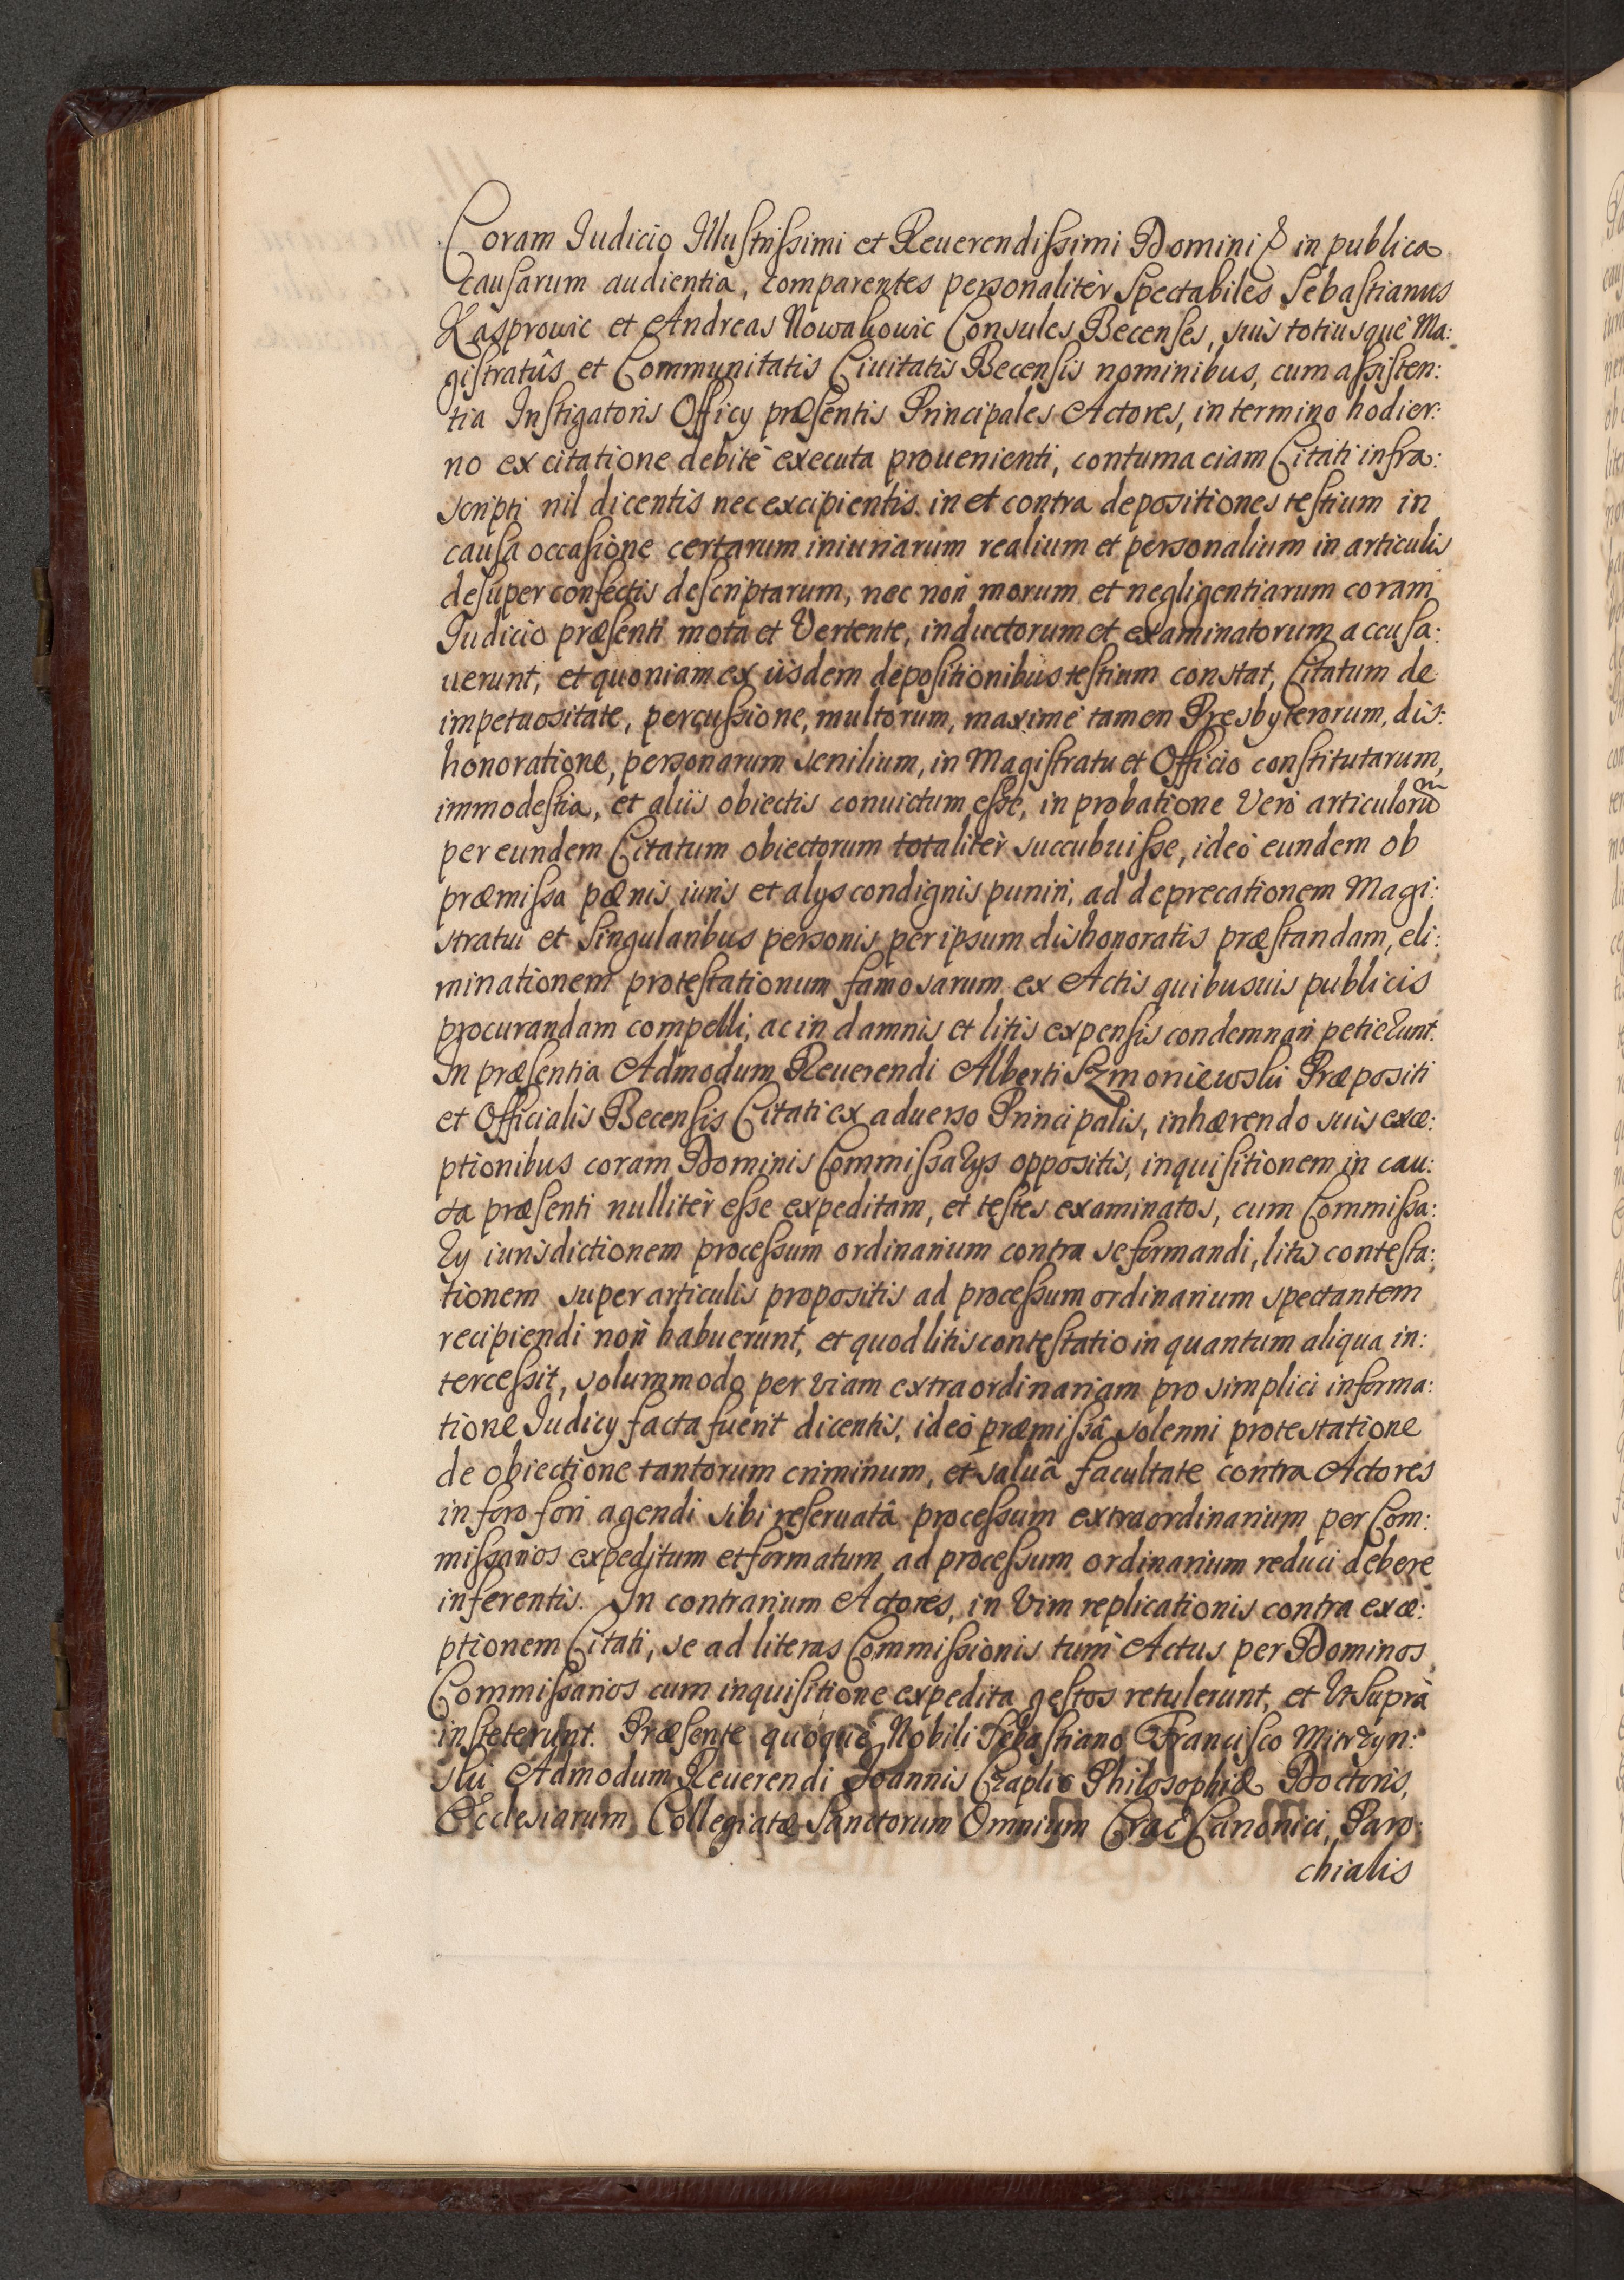 Coram Iudicio Illustrissimi et Reuerendissimi Domini & in publica
causarum audientia, comparentes personalitèr Spectabiles Sebastianus
Kasprowic et Andreas Nowakowic Consules Becenses, suis totiusquè Ma:
gistratûs et Communitatis Ciuitatis Becensis nominibus, cum assisten:
tia Instigatoris Officÿ præsentis Principales Actores, in termino hodier:
no ex citatione debitè executa prouenienti, contumaciam Citati infra:
scripti nil dicentis nec excipientis in et contra depositiones testium in
causa occasione certarum iniuriarum realium et personalium in articulis
desuper confectis descriptarum, nec non morum et negligentiarum coram
Iudicio præsenti mota et Vertente, inductorum et examinatorum accusa:
uerunt, et quoniam ex iisdem depositionibus testium constat, Citatum de
impetuositate, percussione, multorum, maximè tamen Presbyterorum, dis:
honoratione, personarum senilium, in Magistratu et Officio constitutarum,
immodestia, et aliis obiectis conuictum esse, in probatione Verò articulorũ
per eundem Citatum obiectorum totalitèr succubuisse, ideò eundem ob
præmissa pænis iuris et alÿs condignis puniri, ad deprecationem Magi:
stratui et Singularibus personis per ipsum dishonoratis præstandam, eli:
minationem protestationum famosarum ex Actis quibusuis publicis
procurandam compelli, ac in damnis et litis expensis condemnari petierunt.
In præsentia Admodum Reuerendi Alberti Szmoniewski Præpositi
et Officialis Becensis Citati ex aduerso Principalis, inhærendo suis exce:
ptionibus coram Dominis Commissarÿs oppositis, inquisitionem in cau:
sa præsenti nullitèr esse expeditam, et testes examinatos, cum Commissa:
rÿ iurisdictionem processum ordinarium contra se formandi, litis contesta:
tionem super articulis propositis ad processum ordinarium spectantem
recipiendi non habuerunt, et quod litis contestatio in quantum aliqua in:
tercessit, solummodo per viam extraordinariam pro simplici informa:
tione Iudicÿ facta fuerit dicentis, ideò præmissâ solenni protestatione
de obiectione tantorum criminum, et saluâ facultate contra Actores
in foro fori agendi sibi reseruatâ processum extraordinarium per Com:
missarios expeditum et formatum ad processum ordinarium reduci debere
inferentis. In contrarium Actores, in Vim replicationis contra exce:
ptionem Citati, se ad literas Commissionis tum Actus per Dominos
Commissarios cum inquisitione expedita gestos retulerunt, et Vt suprà
insteterunt. Præsente quoquè Nobili Sebastiano Francisco Mirzyn:
ski Admodum Reuerendi Ioannis Czaplic Philosophiæ Doctoris,
Ecclesiarum Collegiatæ Sanctorum Omnium Crac Canonici, Paro:
chialis